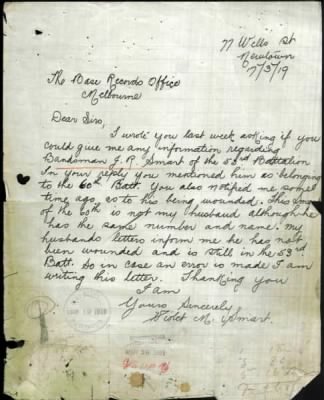 77 Wells St
Newtown
7/3/19
The Base Records Office
Melbourne
Dear Sirs,
I wrote you last week asking if you
could give me any information regarding
Bandsman J. R. Smart of the 53rd Battalion
In your reply you mentioned him as belonging
to the 60th Batt. You also notified me some
time ago, as to his being wounded. This
of the 60th is not my husband although he
has the same number and name. My
husbands letters inform me he has not
been wounded and is still in the 53rd
Batt. So in case an error is made I am
writing this letter. Thanking you
I am
Yours Sincerely
Violet M. Smart.